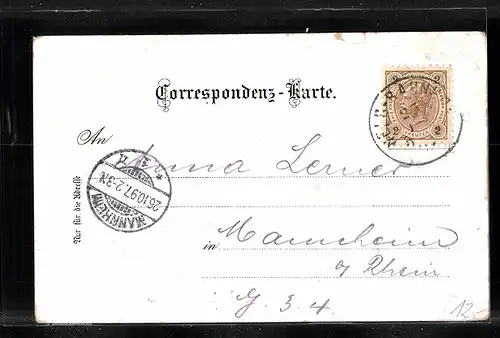 Correspondenz-Karte.
2 2
2 2
An
Anna Lerner
MANNHEIM
26.10.97.2-3N.
Nur für die Adresse
in Mannheim
a/ Rhein
G. 3. 4.
12,-